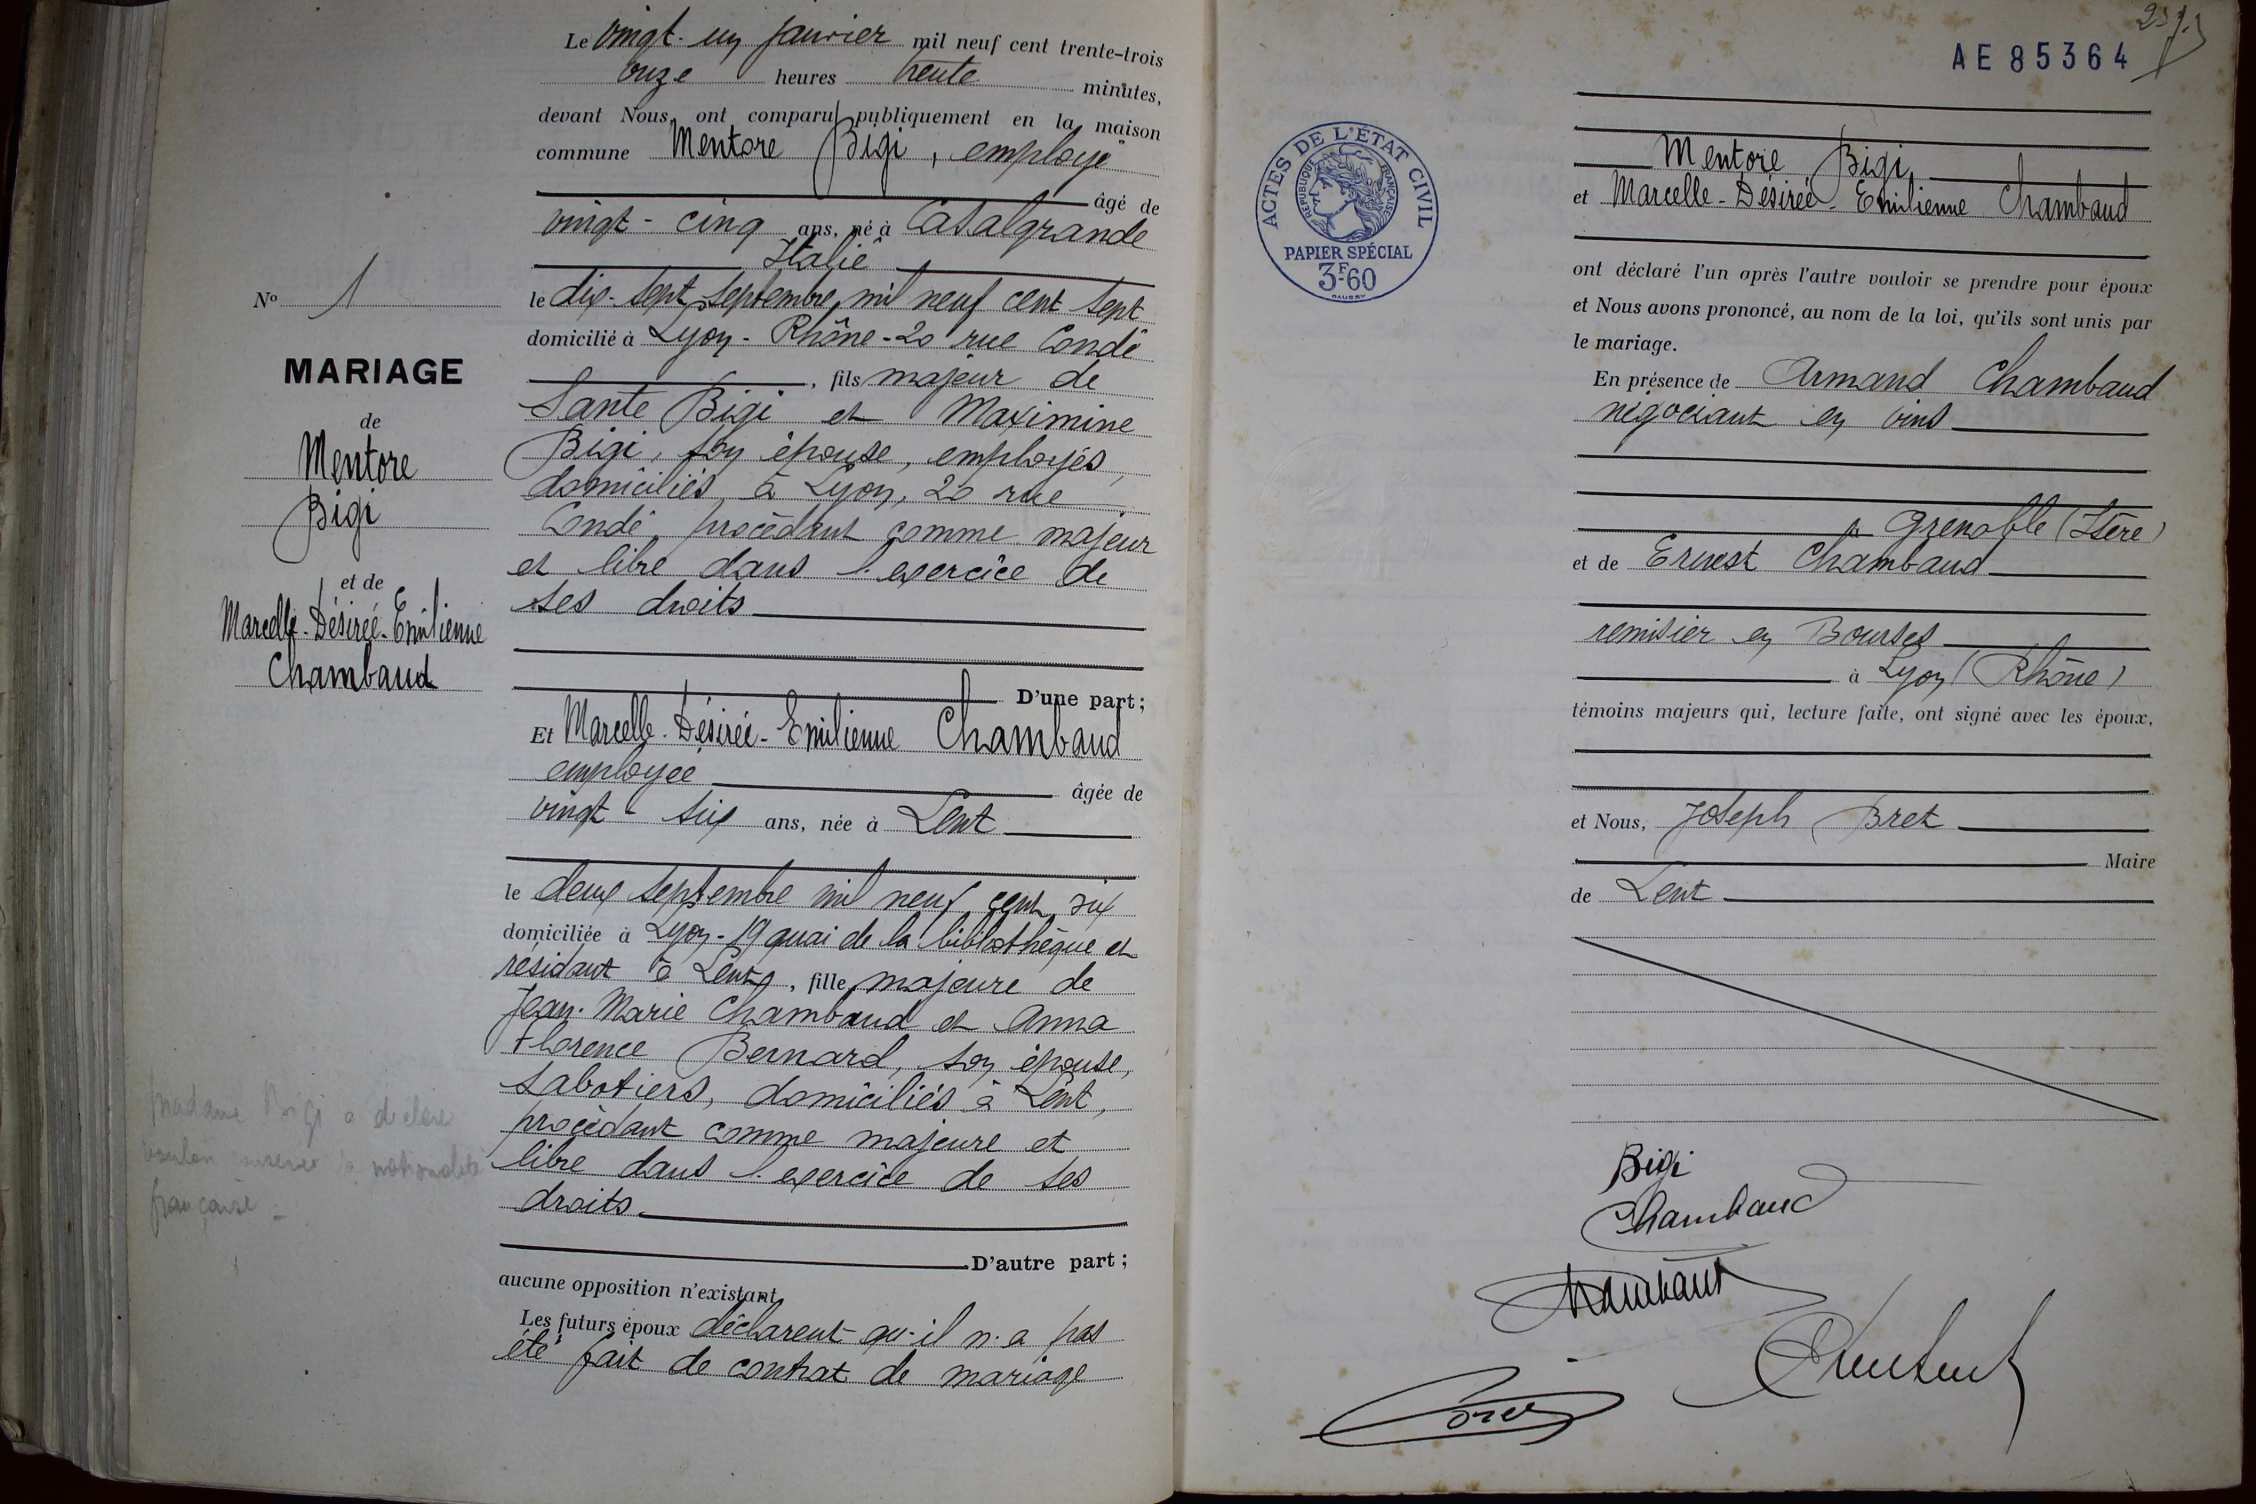 Le vingt-un janvier mil neuf cent trente-trois
onze heures trente minutes,
devant Nous, ont comparu publiquement en la maison
commune Mentore Bigi, employé
âgé de
vingt-cinq ans, né à Casalgrande
Italie
le dix-sept septembre mil neuf cent sept
domicilié à Lyon-Rhône-20 rue Condé
, fils majeur de
Sante Bigi et Maximine
Bigi, son épouse, employés,
domiciliés à Lyon, 20 rue
Condé, procèdant comme majeur
et libre dans l'exercice de
ses droits
D'une part;
Et Marcelle-Désirée-Emilienne Chambaud
employée âgée de
vingt-six ans, née à Lent
le deux septembre mil neuf cent six
domiciliée à Lyon-19 quai de la bibliothèque et
résidant à Lent, fille majeure de
Jean-Marie Chambaud et Anna
Florence Bernard, son épouse,
sabotiers, domiciliés à Lent,
procèdant comme majeure et
libre dans l'exercice de ses
droits.
D'autre part;
aucune opposition n'existant
Les futurs époux déclarent qu'il n'a pas
été fait de contrat de mariage
No 1
MARIAGE
de
Mentore
Bigi
et de
Marcelle-Désirée-Emilienne
Chambaud
Madame Bigi a déclaré
vouloir conserver la nationalité
française
AE 85364
ACTES DE L'ÉTAT CIVIL
RÉPUBLIQUE FRANÇAISE
PAPIER SPÉCIAL
3F60
Mentore Bigi
et Marcelle-Désirée-Emilienne Chambaud
ont déclaré l'un après l'autre vouloir se prendre pour époux
et Nous avons prononcé, au nom de la loi, qu'ils sont unis par
le mariage.
En présence de Armand Chambaud
négociant en vins
à Grenoble (Isère)
et de Ernest Chambaud
remisier en Bourses
à Lyon (Rhône)
témoins majeurs qui, lecture faite, ont signé avec les époux,
et Nous, Joseph Bret
Maire
de Lent
Bigi
Chambaud
Chambaud